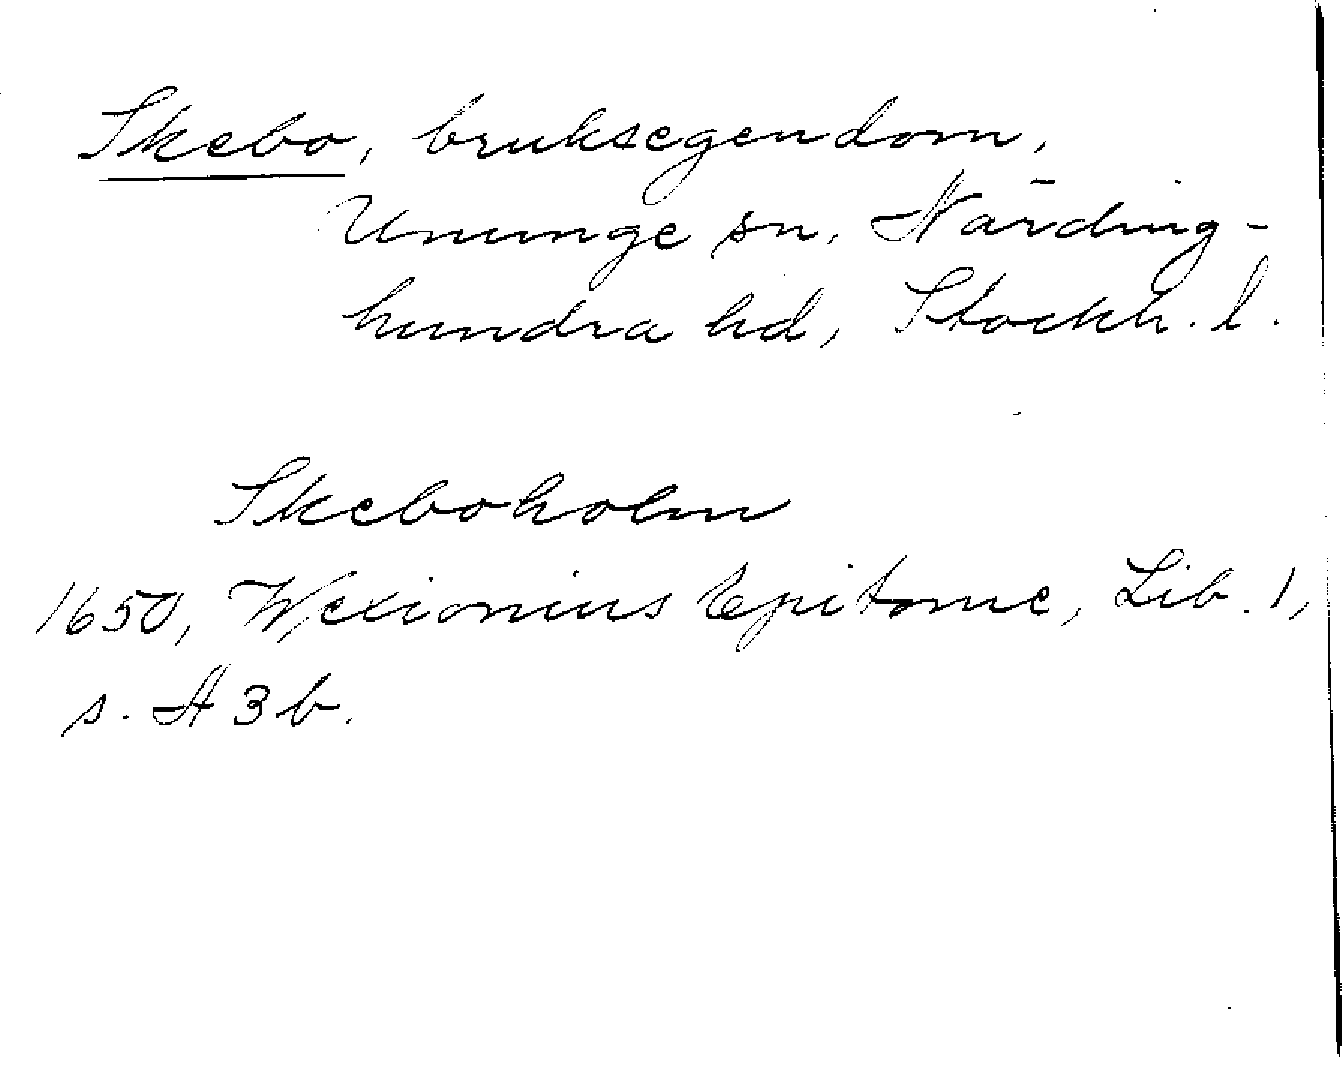 Skebo, bruksegendom,
Ununge sn. Närding-
hundra hd, Stockh. l.
Skeboholm
1650, Wexionius Epitome, Lib. 1,
s. A 3 b.